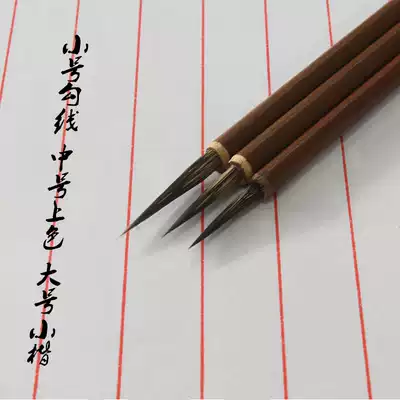 小号勾线 中号上色 大号小楷